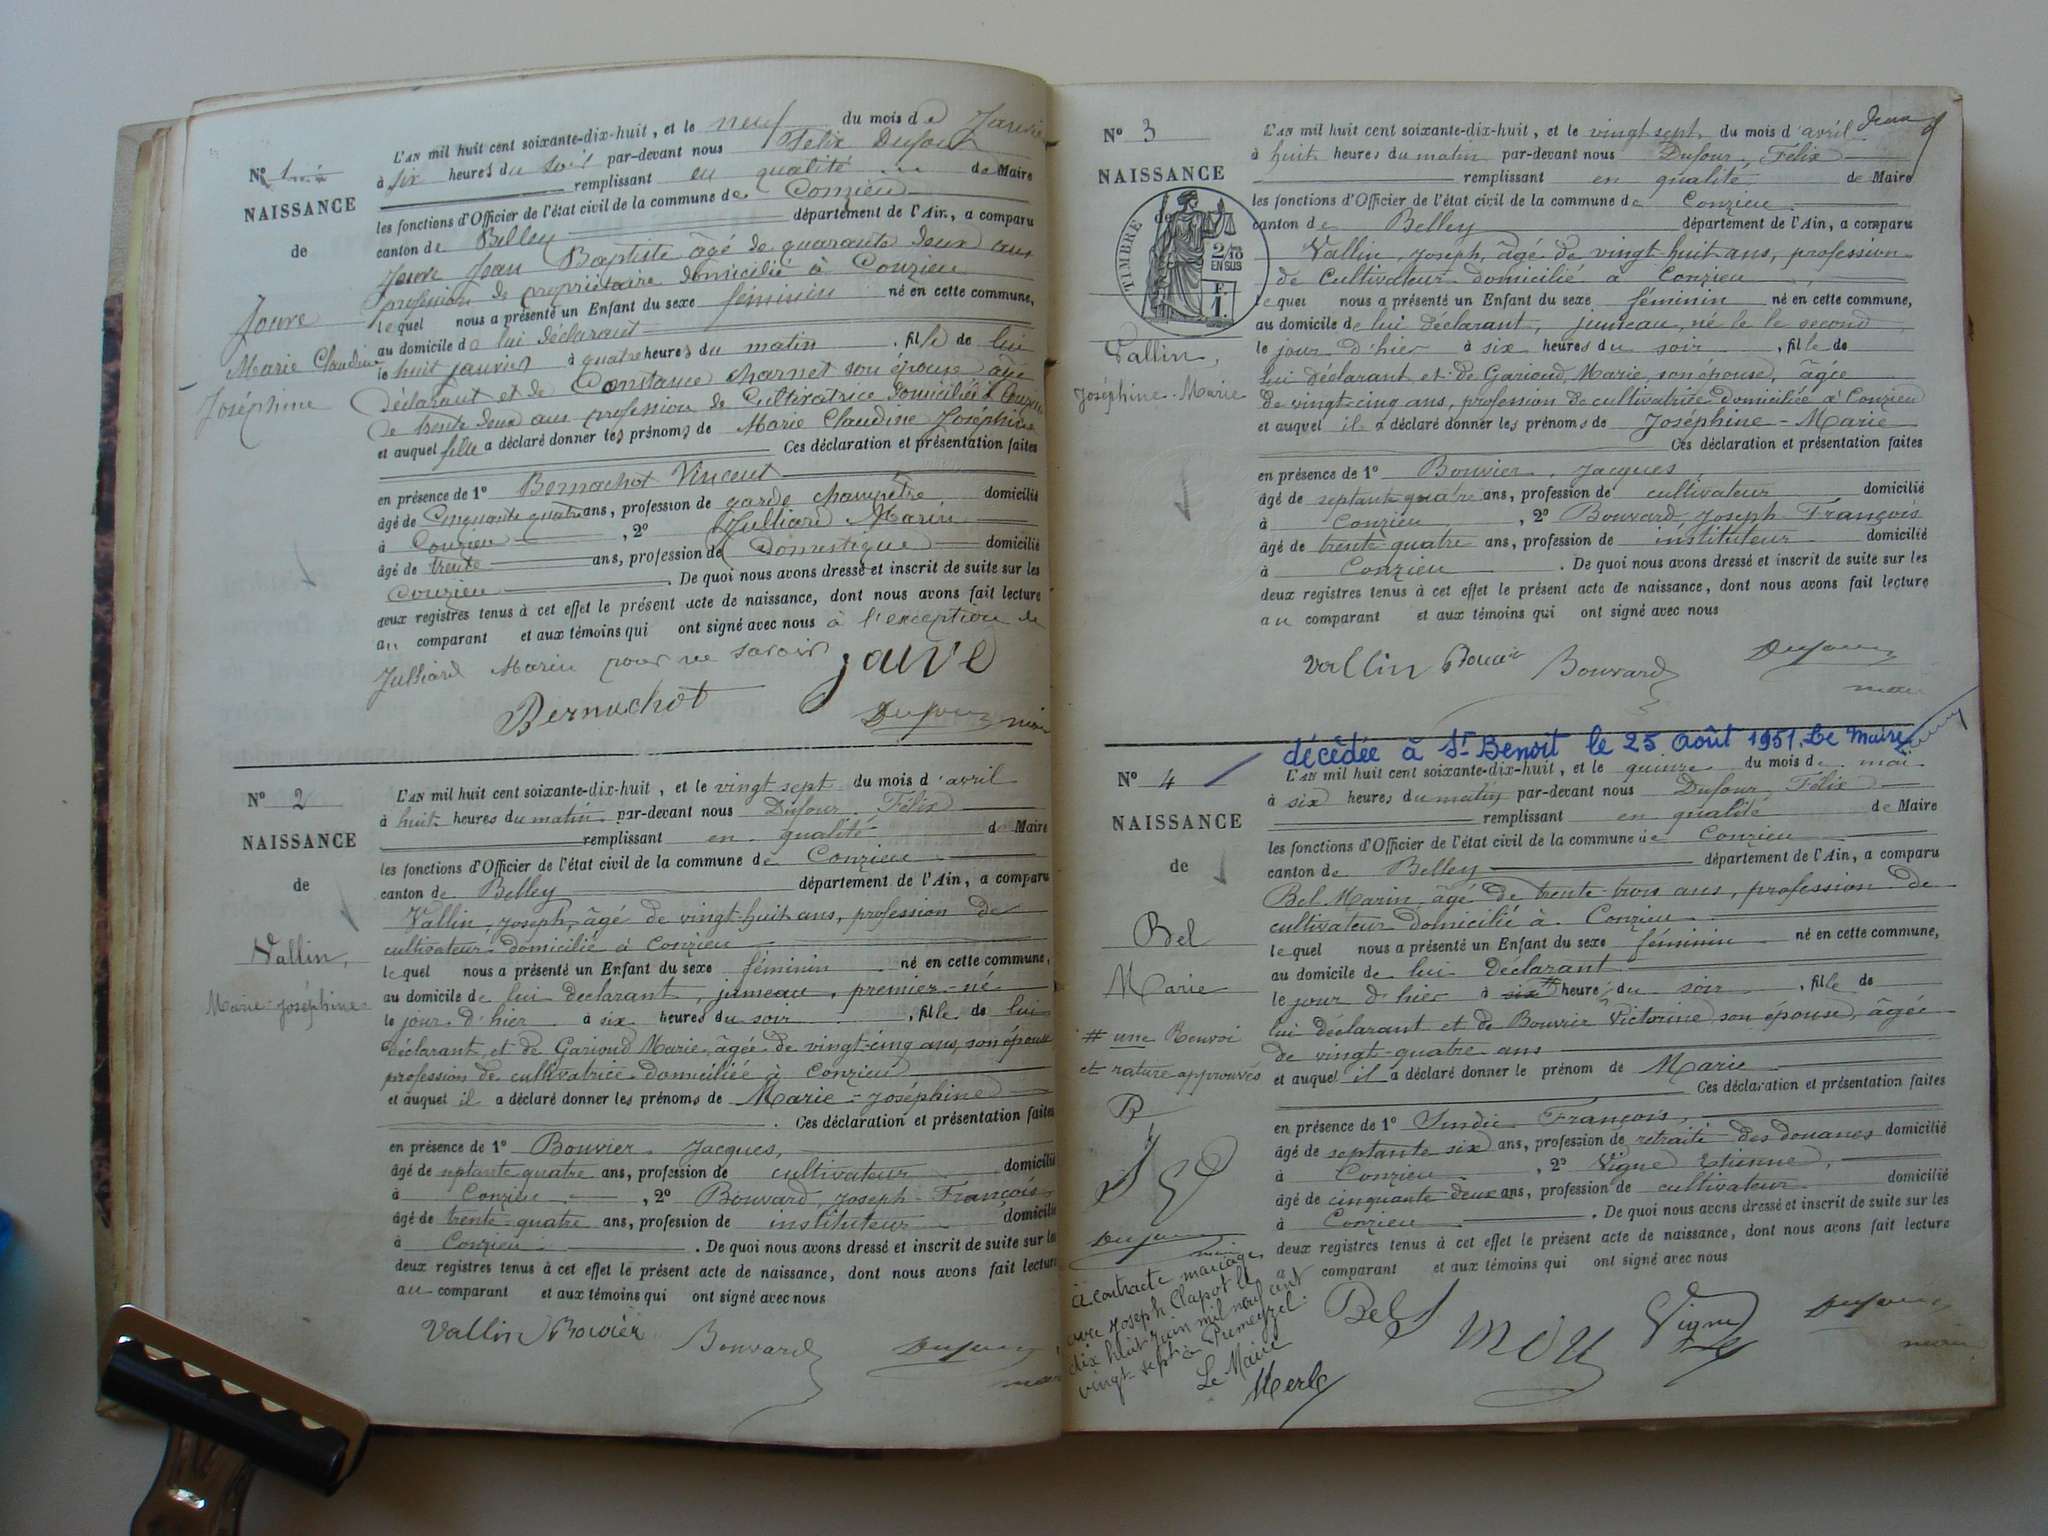 Nº 1
NAISSANCE
de
Jouve
Marie Claudine
Joséphine
L'AN mil huit cent soixante-dix-huit, et le neuf du mois de Janvier
à six heures du soir par-devant nous Félix Dufour
remplissant en qualité de Maire
les fonctions d'Officier de l'état civil de la commune de Conzieu
canton de Belley département de l'Ain, a comparu
Jouve Jean Baptiste âgé de quarante deux ans
profession de propriétaire domicilié à Conzieu
lequel nous a présenté un Enfant du sexe féminin né en cette commune,
au domicile de lui déclarant
le huit janvier à quatre heures du matin, fille de lui
déclarant et de Constance Charnet son épouse âgée
de trente deux ans profession de Cultivatrice domiciliée à Conzieu
et auquel fille a déclaré donner les prénoms de Marie Claudine Joséphine
Ces déclaration et présentation faites
en présence de 1º Bernachot Vincent
âgé de Cinquante quatre ans, profession de garde champêtre domicilié
à Conzieu, 2º Julliard Marin
âgé de trente ans, profession de Domestique domicilié
Conzieu. De quoi nous avons dressé et inscrit de suite sur les
deux registres tenus à cet effet le présent acte de naissance, dont nous avons fait lecture
au comparant et aux témoins qui ont signé avec nous à l'exception de
Julliard Marin pour ne savoir
Jouve
Bernachot
Dufour maire
Nº 2
NAISSANCE
de
Vallin,
Marie-Joséphine
L'AN mil huit cent soixante-dix-huit, et le vingt sept du mois d'avril
à huit heures du matin par-devant nous Dufour, Félix
remplissant en qualité de Maire
les fonctions d'Officier de l'état civil de la commune de Conzieu
canton de Belley département de l'Ain, a comparu
Vallin, Joseph, âgé de vingt-huit ans, profession de
cultivateur domicilié à Conzieu
lequel nous a présenté un Enfant du sexe féminin né en cette commune,
au domicile de lui déclarant, jumeau, premier-né
le jour d'hier à six heures du soir, fille de lui
déclarant, et de Garioud Marie, âgée de vingt-cinq ans, son épouse
profession de cultivatrice domiciliée à Conzieu
et auquel il a déclaré donner les prénoms de Marie-Joséphine
Ces déclaration et présentation faites
en présence de 1º Bouvier, Jacques,
âgé de septante quatre ans, profession de cultivateur domicilié
à Conzieu, 2º Bouvard, Joseph-François
âgé de trente-quatre ans, profession de instituteur domicilié
à Conzieu. De quoi nous avons dressé et inscrit de suite sur les
deux registres tenus à cet effet le présent acte de naissance, dont nous avons fait lecture
au comparant et aux témoins qui ont signé avec nous
Vallin Bouvier Bouvard Dufour
maire
Nº 3
NAISSANCE
de
TIMBRE
2/10
EN SUS
F.
1.
Vallin,
Joséphine-Marie
L'AN mil huit cent soixante-dix-huit, et le vingt sept du mois d'avril
à huit heures du matin par-devant nous Dufour, Félix
remplissant en qualité de Maire
les fonctions d'Officier de l'état civil de la commune de Conzieu
canton de Belley département de l'Ain, a comparu
Vallin, Joseph, âgé de vingt-huit ans, profession
de Cultivateur domicilié à Conzieu
lequel nous a présenté un Enfant du sexe féminin né en cette commune,
au domicile de lui déclarant, jumeau, né le second
le jour d'hier à six heures du soir, fille de
lui déclarant et de Garioud, Marie, son épouse, âgée
de vingt-cinq ans, profession de cultivatrice domiciliée à Conzieu
et auquel il a déclaré donner les prénoms de Joséphine-Marie
Ces déclaration et présentation faites
en présence de 1º Bouvier, Jacques
âgé de septante quatre ans, profession de cultivateur domicilié
à Conzieu, 2º Bouvard Joseph-François
âgé de trente-quatre ans, profession de instituteur domicilié
à Conzieu. De quoi nous avons dressé et inscrit de suite sur les
deux registres tenus à cet effet le présent acte de naissance, dont nous avons fait lecture
au comparant et aux témoins qui ont signé avec nous
Vallin Bouvier Bouvard Dufour
maire
décédée à St Benoit le 25 août 1951. Le Maire
Nº 4
NAISSANCE
de
Bel
Marie
# une Renvoi
et rature approuvés
B
Dufour
maire
a contracté mariage
avec Joseph Clapot le
dix huit juin mil neuf cent
vingt-sept à Prémeyzel.
Le Maire
Merle
L'AN mil huit cent soixante-dix-huit, et le quinze du mois de mai
à six heures du matin par-devant nous Dufour, Félix
remplissant en qualité de Maire
les fonctions d'Officier de l'état civil de la commune de Conzieu
canton de Belley département de l'Ain, a comparu
Bel Marin, âgé de trente-trois ans, profession de
cultivateur domicilié à Conzieu
lequel nous a présenté un Enfant du sexe féminin né en cette commune,
au domicile de lui déclarant
le jour d'hier à six # heure du soir, fille de
lui déclarant et de Bouvier Victorine son épouse, âgée
de vingt-quatre ans
et auquel il a déclaré donner le prénom de Marie
Ces déclaration et présentation faites
en présence de 1º François,
âgé de septante six ans, profession de retraité des douanes domicilié
à Conzieu, 2º Vigne Etienne,
âgé de cinquante deux ans, profession de cultivateur domicilié
à Conzieu. De quoi nous avons dressé et inscrit de suite sur les
deux registres tenus à cet effet le présent acte de naissance, dont nous avons fait lecture
comparant et aux témoins qui ont signé avec nous
Bel Vigne Dufour
maire